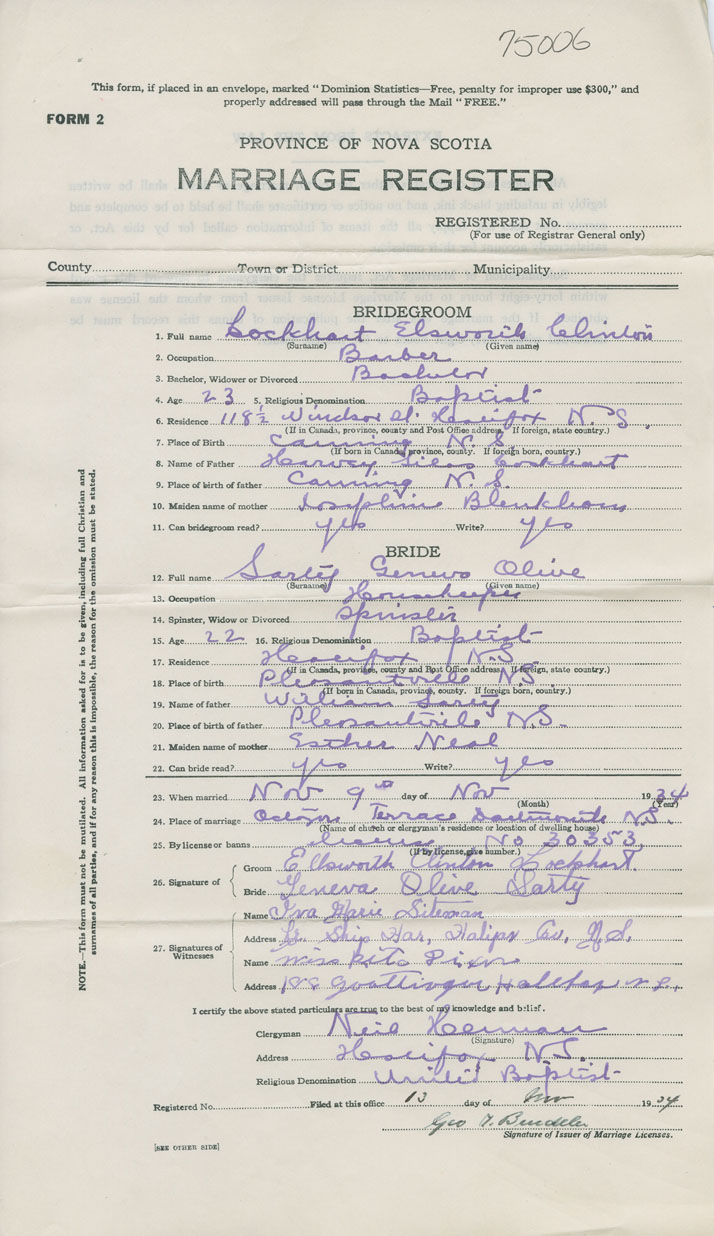 75006
This form, if placed in an envelope, marked "Dominion Statistics—Free, penalty for improper use $300," and
properly addressed will pass through the Mail "FREE."
FORM 2
PROVINCE OF NOVA SCOTIA
MARRIAGE REGISTER
REGISTERED No.
(For use of Registrar General only)
County Town or District Municipality
BRIDEGROOM
1. Full name Lockhart Elsworth Clinton
(Surname) (Given name)
2. Occupation Barber
3. Bachelor, Widower or Divorced Bachelor
4. Age 23 5. Religious Denomination Baptist
6. Residence 118½ Windsor St. Halifax N.S.
(If in Canada, province, county and Post Office address. If foreign, state country.)
7. Place of Birth Canning N.S.
(If born in Canada, province, county. If foreign born, country.)
8. Name of Father Harvey Lockhart
9. Place of birth of father Canning N.S.
10. Maiden name of mother Josephine Blenkhorn
11. Can bridegroom read? yes Write? yes
BRIDE
12. Full name Sarty Geneva Olive
(Surname) (Given name)
13. Occupation Housekeeper
14. Spinster, Widow or Divorced Spinster
15. Age 22 16. Religious Denomination Baptist
17. Residence Halifax N.S
(If in Canada, province, county and Post Office address. If foreign, state country.)
18. Place of birth Pleasantville N.S
(If born in Canada, province, county. If foreign born, country.)
19. Name of father William Sarty
20. Place of birth of father Pleasantville N.S.
21. Maiden name of mother Esther Neal
22. Can bride read? yes Write? yes
23. When married Nov 9th day of Nov 1934
(Month) (Year)
24. Place of marriage Terrace Dartmouth N.S.
(Name of church or clergyman's residence or location of dwelling house)
25. By license or banns License No 30353
(If by license, give number.)
26. Signature of
Groom Ellsworth Clinton Lockhart.
Bride Geneva Olive Sarty
27. Signatures of
Witnesses
Name Iva Marie Siteman
Address Ship Har, Halifax Co, N.S.
Name Miss Rita
Address Gottingen Halifax N.S.
I certify the above stated particulars are true to the best of my knowledge and belief.
Clergyman Neil Herman
(Signature)
Address Halifax N.S.
Religious Denomination United Baptist
Registered No. Filed at this office 13 day of Nov 1934
Geo
Signature of Issuer of Marriage Licenses.
[SEE OTHER SIDE]
NOTE.—This form must not be mutilated. All information asked for is to be given, including full Christian and
surnames of all parties, and if for any reason this is impossible, the reason for the omission must be stated.